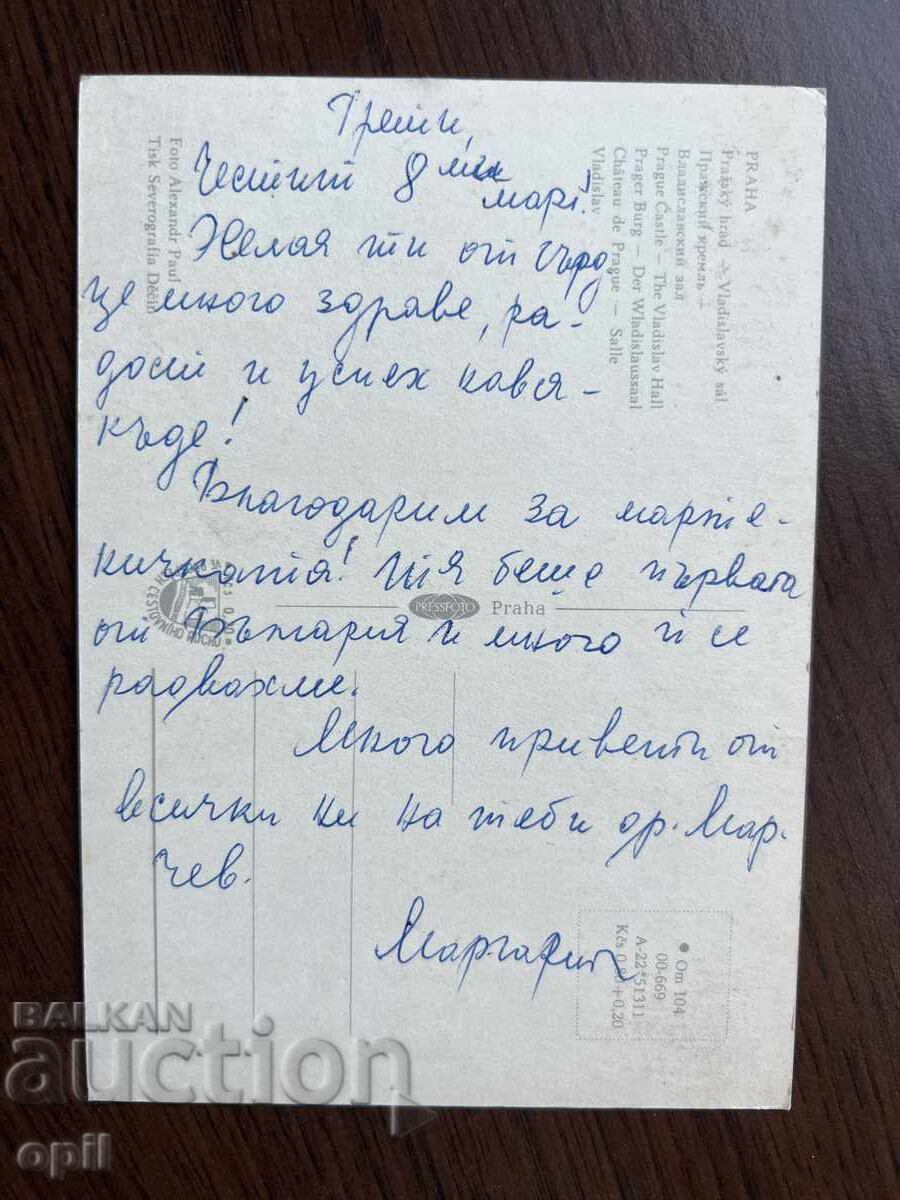 Грети,
Честит 8 март!
Желая ти от сърд
це много здраве, ра-
дост и успех нався-
къде!
Благодарим за марте-
ничката! Тя беше първата
от България и много ѝ се
радвахме.
Много привети от
всички ни на теб и др. Мар-
чев.
Маргарита
PRAHA
Pražský hrad – Vladislavský sál
Пражский кремль –
Владиславский зал
Prague Castle – The Vladislav Hall
Prager Burg – Der Wladislaussaal
Château de Prague – Salle
Vladislav
Foto Alexandr Paul
Tisk Severografia Děčín
PRESSFOTO Praha
CESTOVNÍHO RUCHU
• Om 104
00-669
A-22*51311
+0,20
BALKAN
auction
opil